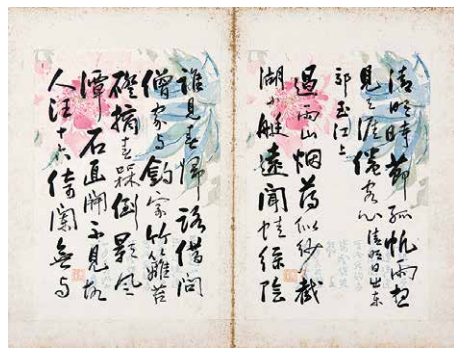 清明時節孤帆雨想
見天涯倦客心清明日出東
郭至江上
過雨山烟薄似紗截
湖小艇遠聞蛙綠陰
誰見春歸路借問
僧家与釣家竹籬苔
磴摘春踩倒影風
潭石直開不見故
人汪十六倚闌無与